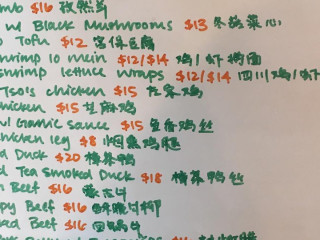 $16 孜然羊
w/ Black Mushrooms $13 冬菇菜心
Tofu $12 宫保豆腐
shrimp lo mein $12/$14 鸡/虾捞面
shrimp lettuce wraps $12/$14 四川鸡/虾
Tso's chicken $15 左宗鸡
chicken $15 芝麻鸡
w/ Garlic sauce $15 鱼香鸡丝
chicken leg $8 烟熏鸡腿
Duck $20 樟茶鸭
Tea Smoked Duck $18 樟茶鸭丝
Beef $16 蒙古牛
Beef $16
Beef $16 回锅牛